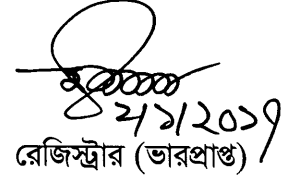 ২/১/২০১৭
রেজিস্ট্রার (ভারপ্রাপ্ত)